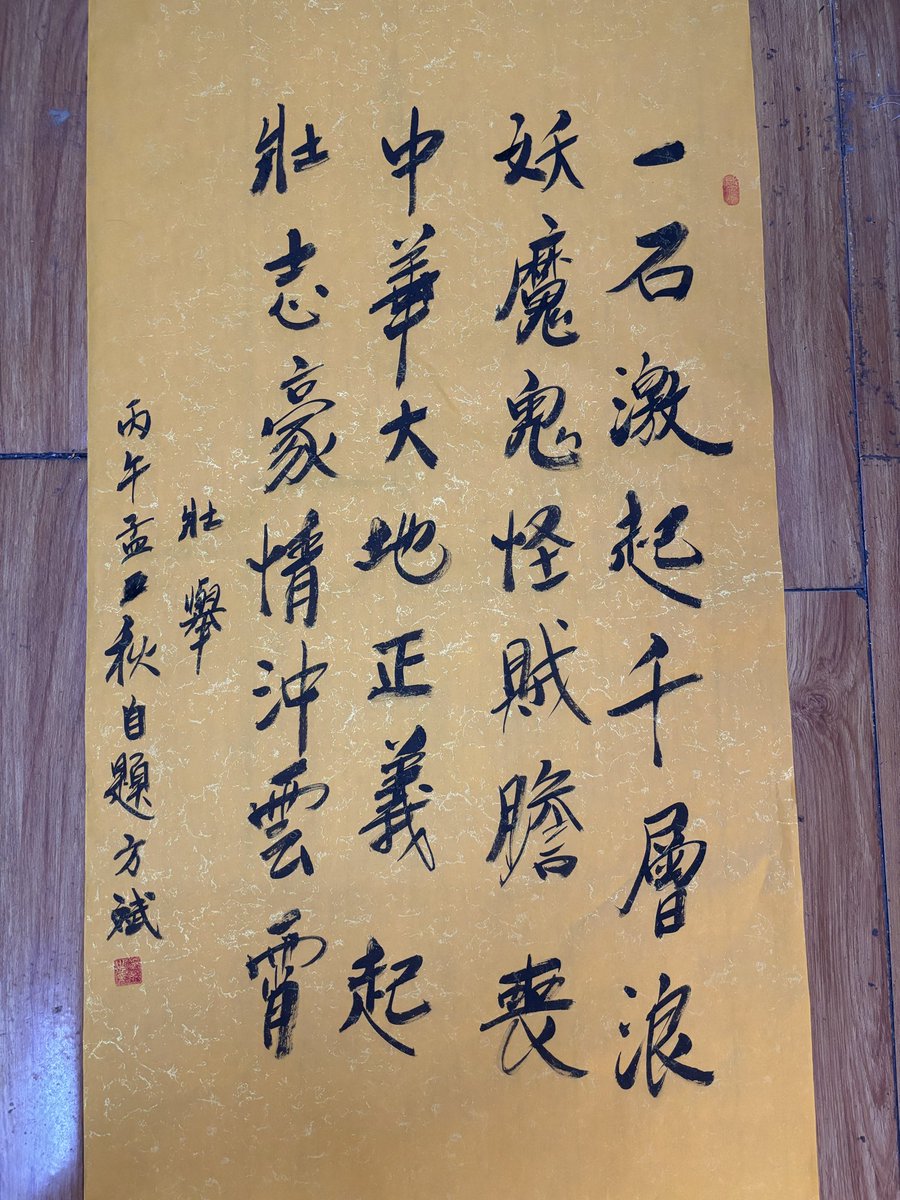 一石激起千層浪
妖魔鬼怪賊膽喪
中華大地正義起
壯志豪情沖雲霄
壯舉
丙午孟秋自題方斌